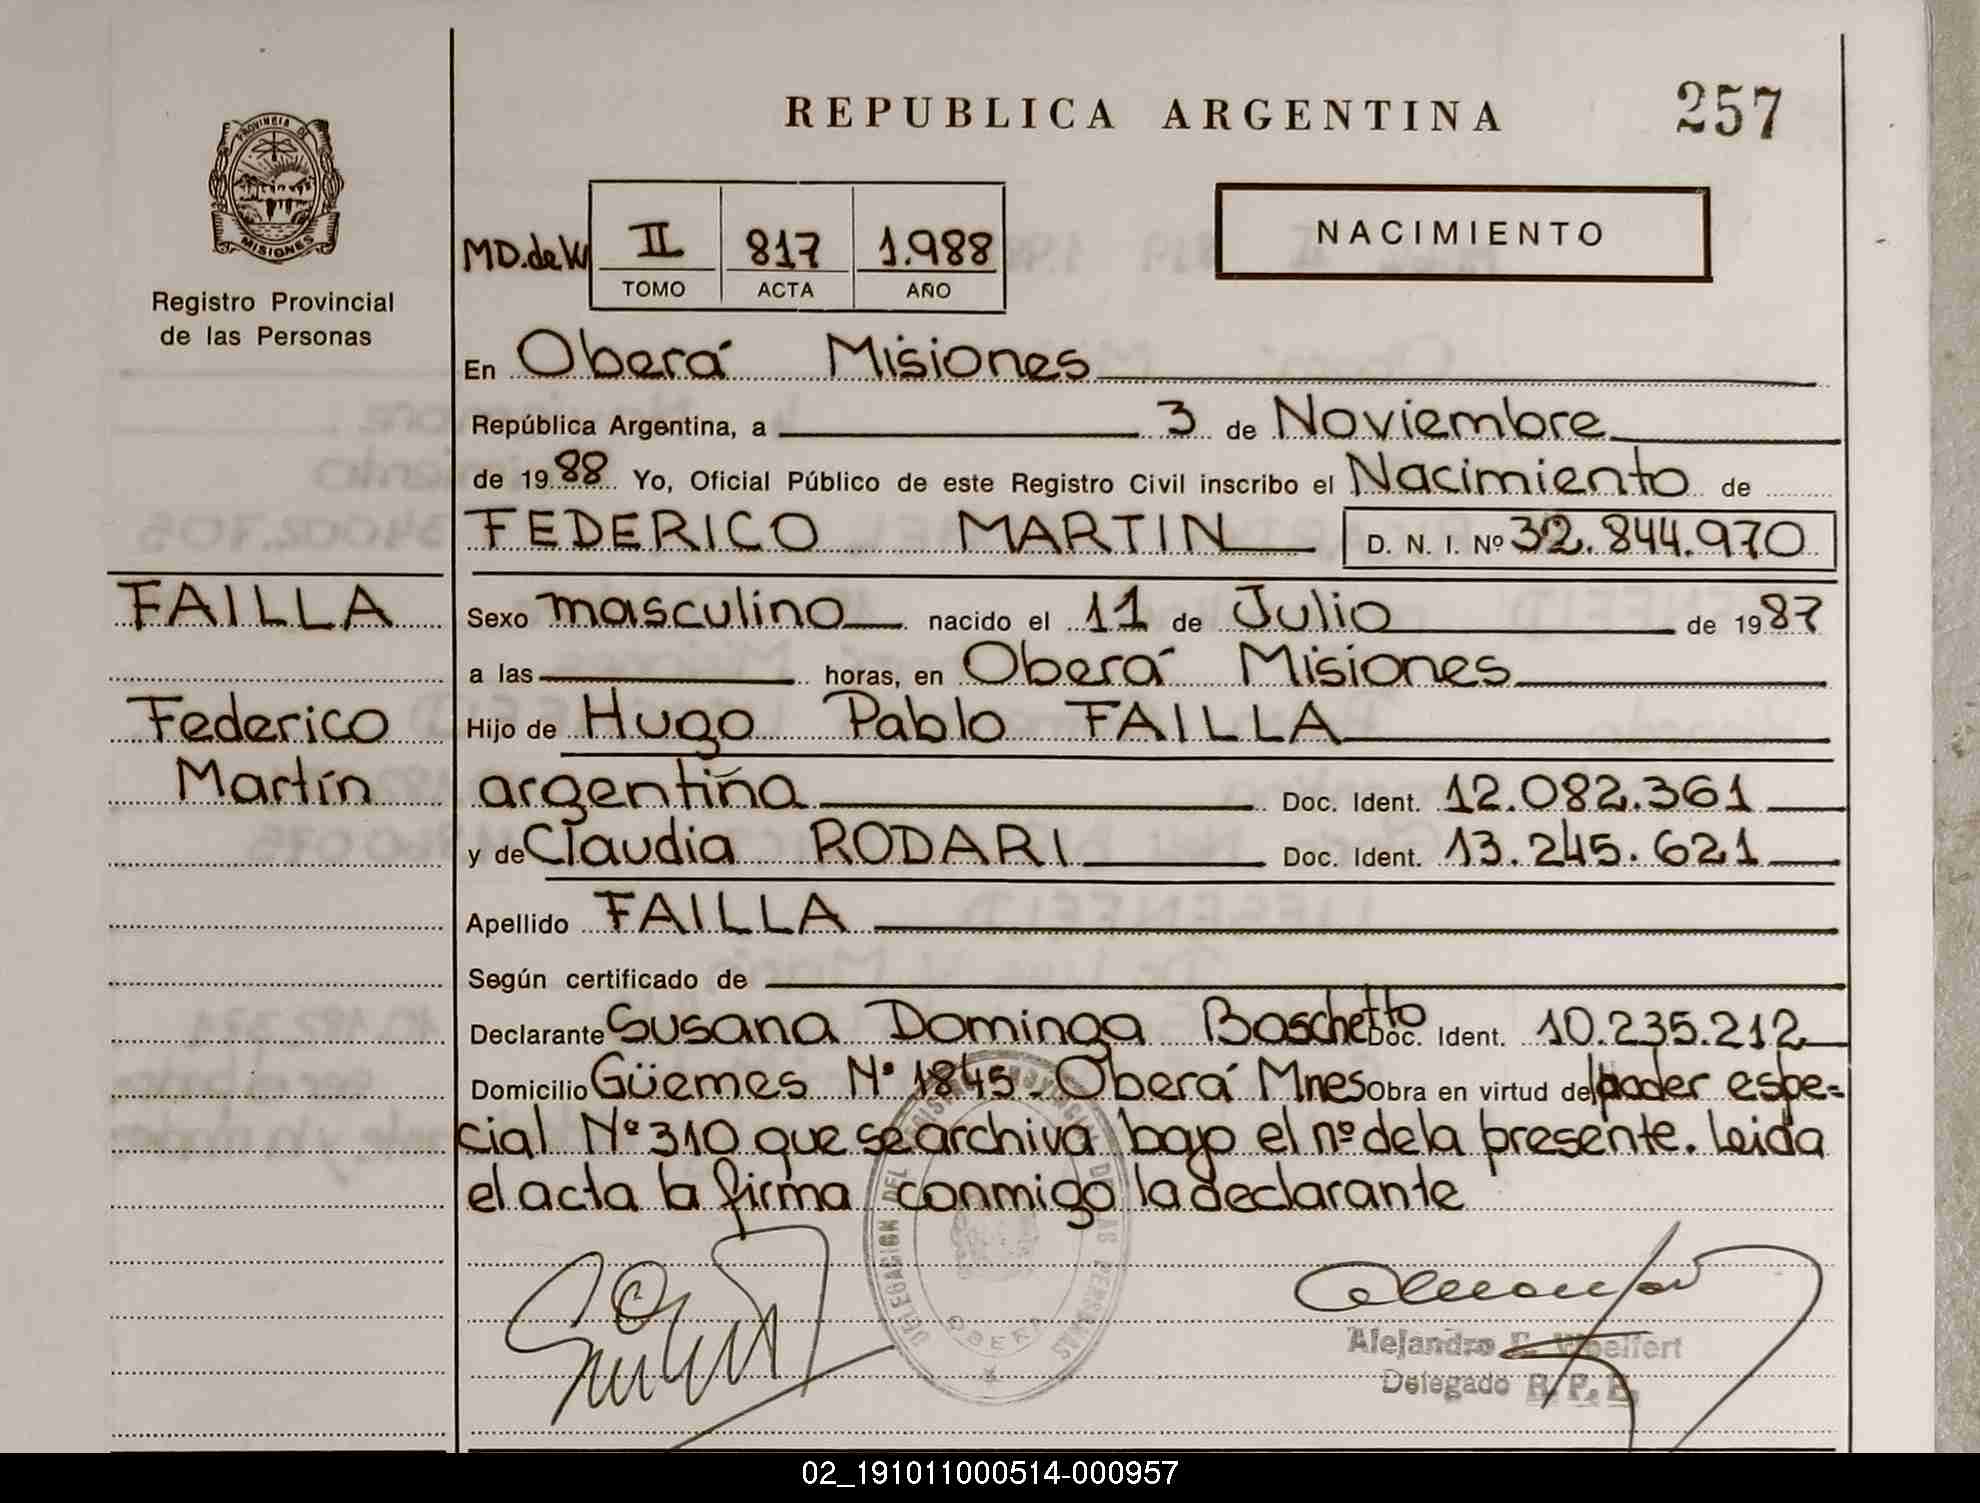 REPUBLICA ARGENTINA
257
PROVINCIA DE
MISIONES
Registro Provincial
de las Personas
MD.de W
II 817 1.988
TOMO ACTA AÑO
NACIMIENTO
En Oberá Misiones
República Argentina, a 3 de Noviembre
de 1988 Yo, Oficial Público de este Registro Civil inscribo el Nacimiento de
FEDERICO MARTIN D. N. I. Nº 32.844.970
FAILLA
Federico
Martín
Sexo masculino nacido el 11 de Julio de 1987
a las horas, en Oberá Misiones
Hijo de Hugo Pablo FAILLA
argentina Doc. Ident. 12.082.361
y de Claudia RODARI Doc. Ident. 13.245.621
Apellido FAILLA
Según certificado de
Declarante Susana Dominga Boschetto Doc. Ident. 10.235.212
Domicilio Güemes Nº 1845. Oberá Mnes Obra en virtud de poder espe-
cial Nº 310 que se archiva bajo el nº de la presente. Leida
el acta la firma conmigo la declarante
DELEGACION DEL REGISTRO PROVINCIAL DE LAS PERSONAS
OBERA
Alejandro E. Woelfert
Delegado R. P. P.
02_191011000514-000957